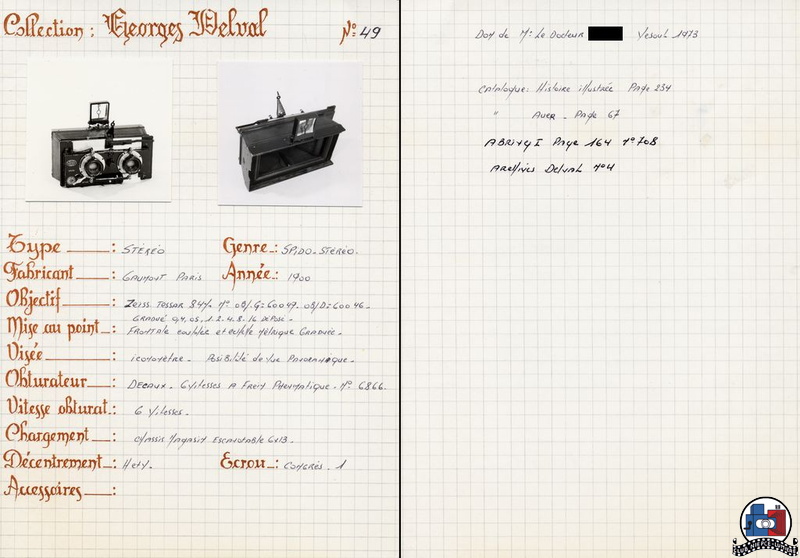 Collection : Georges Delval N° 49
Type : STÉRÉO Genre : SPIDO-STÉRÉO.
Fabricant : GAUMONT PARIS Année : 1900
Objectif : Zeiss. TESSAR 84% N° OB/.G=60047. OB/D=60046.
GRADUÉ 0,4,05,1.2.4.8.16
Mise au point : FRONTALE couplée et échelle Métrique GRADUÉE.
Visée : iconomètre. Possibilité de Vue PANORAMIQUE.
Obturateur : DECAUX. 6 Vitesses A FREIN PNEUMATIQUE. N° 6866.
Vitesse obturat. : 6 Vitesses.
Chargement : châssis MAGASIN ESCAMOTABLE 6x13.
Décentrement : Ecrou : CONGRÈS. 1
Accessoires :
DON de Mr Le Docteur Vesoul 1973
Catalogue : Histoire illustrée Page 234
" AUER - Page 67
ABRING I Page 164 N° 708
ARCHIVES DELVAL N°4